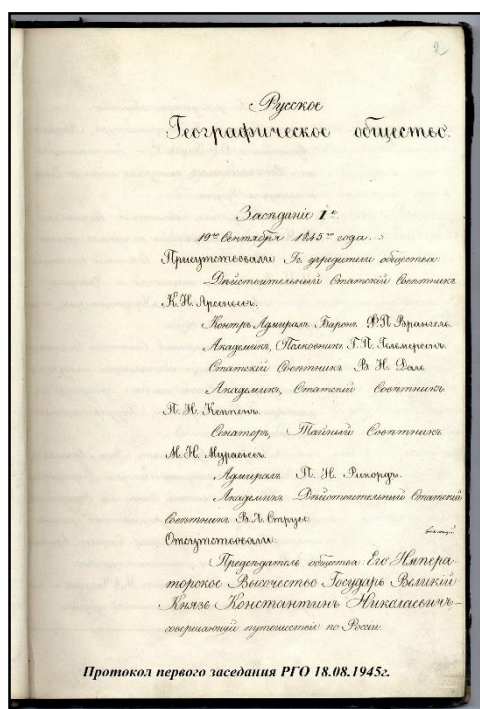 2
Русское
Географическое общество.
Заседаніе 1е.
19го Сентября 1845го года.
Присутствовали Гг. учредители общества:
Дѣйствительный Статскій Совѣтникъ
К. И. Арсеньевъ.
Контръ Адмиралъ Баронъ Ф. П. Врангель.
Академикъ, Полковникъ Г. П. Гельмерсенъ.
Статскій Совѣтникъ В. И. Даль.
Академикъ, Статскій Совѣтникъ
П. И. Кеппенъ.
Сенаторъ, Тайный Совѣтникъ
М. Н. Муравьевъ.
Адмиралъ П. И. Рикордъ.
Академикъ Дѣйствительный Статскій
Совѣтникъ В. Я. Струве.
Отсутствовали:
Предсѣдатель общества Его Импера-
торское Высочество Государь Великій
Князь Константинъ Николаевичъ,–
совершающій путешествіе по Россіи.
Протокол первого заседания РГО 18.08.1945г.